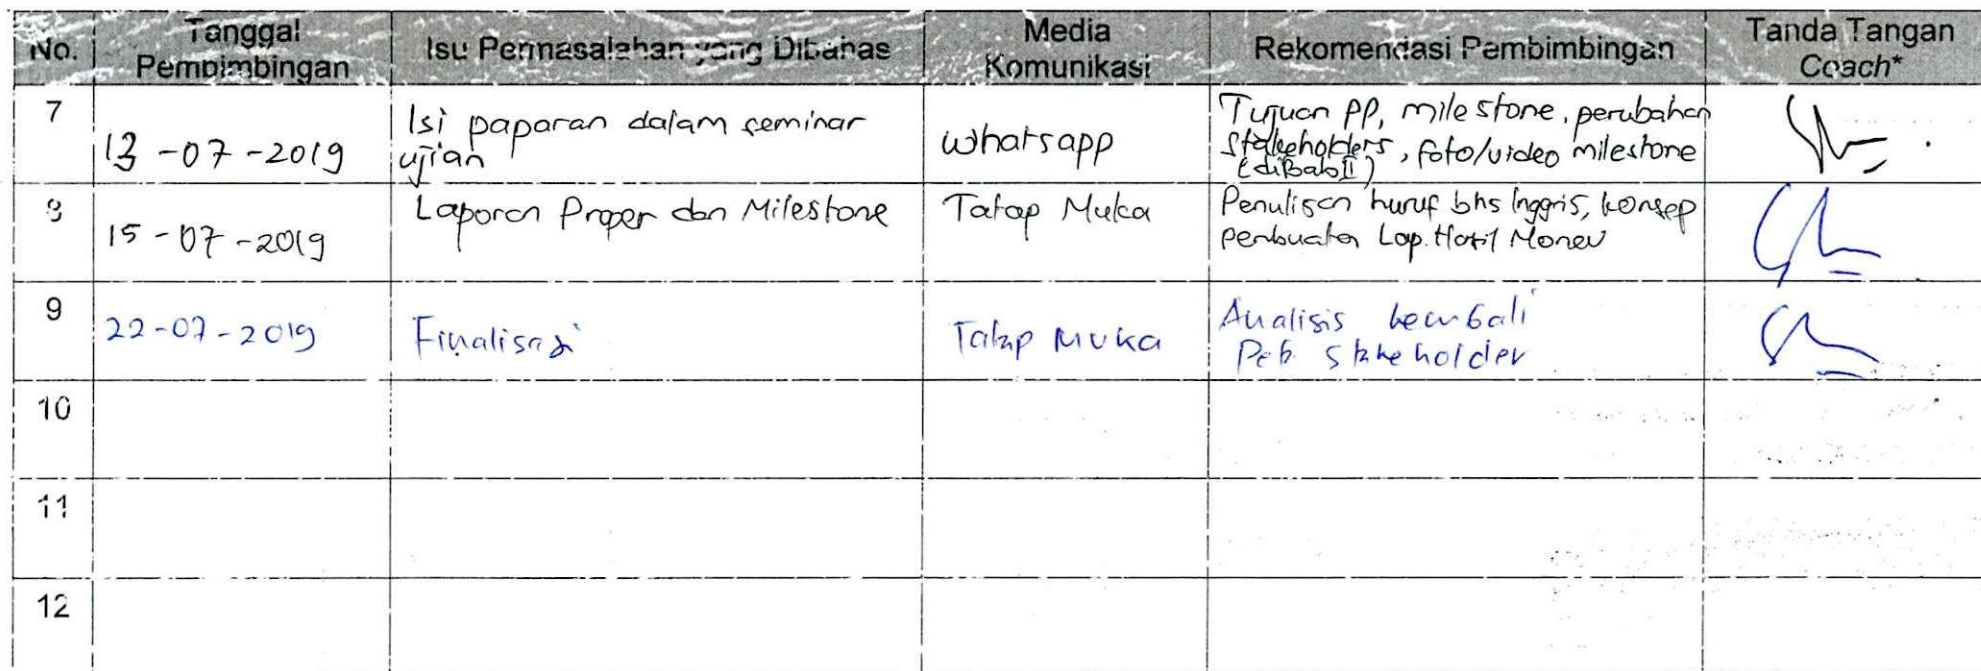 No. Tanggal Pembimbingan Isu Permasalahan yang Dibahas Media Komunikasi Rekomendasi Pembimbingan Tanda Tangan Coach*
7 13-07-2019 Isi paparan dalam seminar ujian whatsapp Tujuan PP, milestone, perubahan stakeholders, foto/video milestone (di Bab II)
8 15-07-2019 Laporan Proper dan Milestone Tatap Muka Penulisan huruf bhs Inggris, konsep pembuatan Lap. Hasil Monev
9 22-07-2019 Finalisasi Tatap Muka Analisis kembali stakeholder
10
11
12